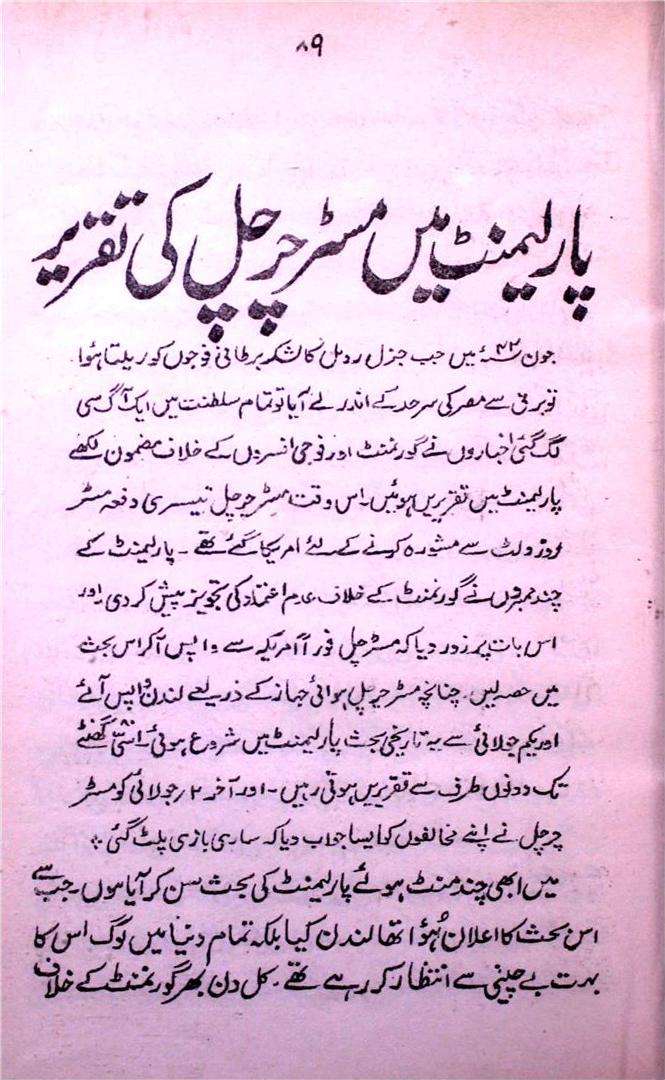 ۸۹
پارلیمنٹ میں مسٹر چرچل کی تقریر
جون ۴۲ء؁ میں جب جنرل رومل کا لشکر برطانی فوجوں کو ریلتا ہؤا
توبرق سے مصر کی سرحد کے اندر لے آیا تو تمام سلطنت میں ایک آگ سی
لگ گئی اخباروں نے گورنمنٹ اور فوجی افسروں کے خلاف مضمون لکھے
پارلیمنٹ میں تقریریں ہوئیں۔ اس وقت مسٹر چرچل تیسری دفعہ مسٹر
روزولٹ سے مشورہ کرنے کے لئے امریکا گئے تھے ۔ پارلیمنٹ کے
چند ممبروں نے گورنمنٹ کے خلاف عدم اعتماد کی تجویز پیش کردی ۔ اور
اس بات پر زور دیا کہ مسٹر چرچل فوراً امریکہ سے واپس آکر اس بحث
میں حصہ لیں۔ چنانچہ مسٹر چرچل ہوائی جہاز کے ذریعے لندن واپس آئے
اور یکم جولائی سے یہ تاریخی بحث پارلیمنٹ میں شروع ہوئی۔ گھنٹے
تک دونوں طرف سے تقریریں ہوتی رہیں ۔ اور آخر ۲ر جولائی کو مسٹر
چرچل نے اپنے مخالفوں کو ایسا جواب دیا کہ ساری بازی پلٹ گئی ؞
میں ابھی چند منٹ ہوئے پارلیمنٹ کی بحث سن کر آیا ہوں ۔ جب سے
اس بحث کا اعلان ہُؤا تھا لندن کیا بلکہ تمام دنیا میں لوگ اس کا
بہت بے چینی سے انتظار کر رہے تھے ۔ کل دن بھر گورنمنٹ کے خلاف